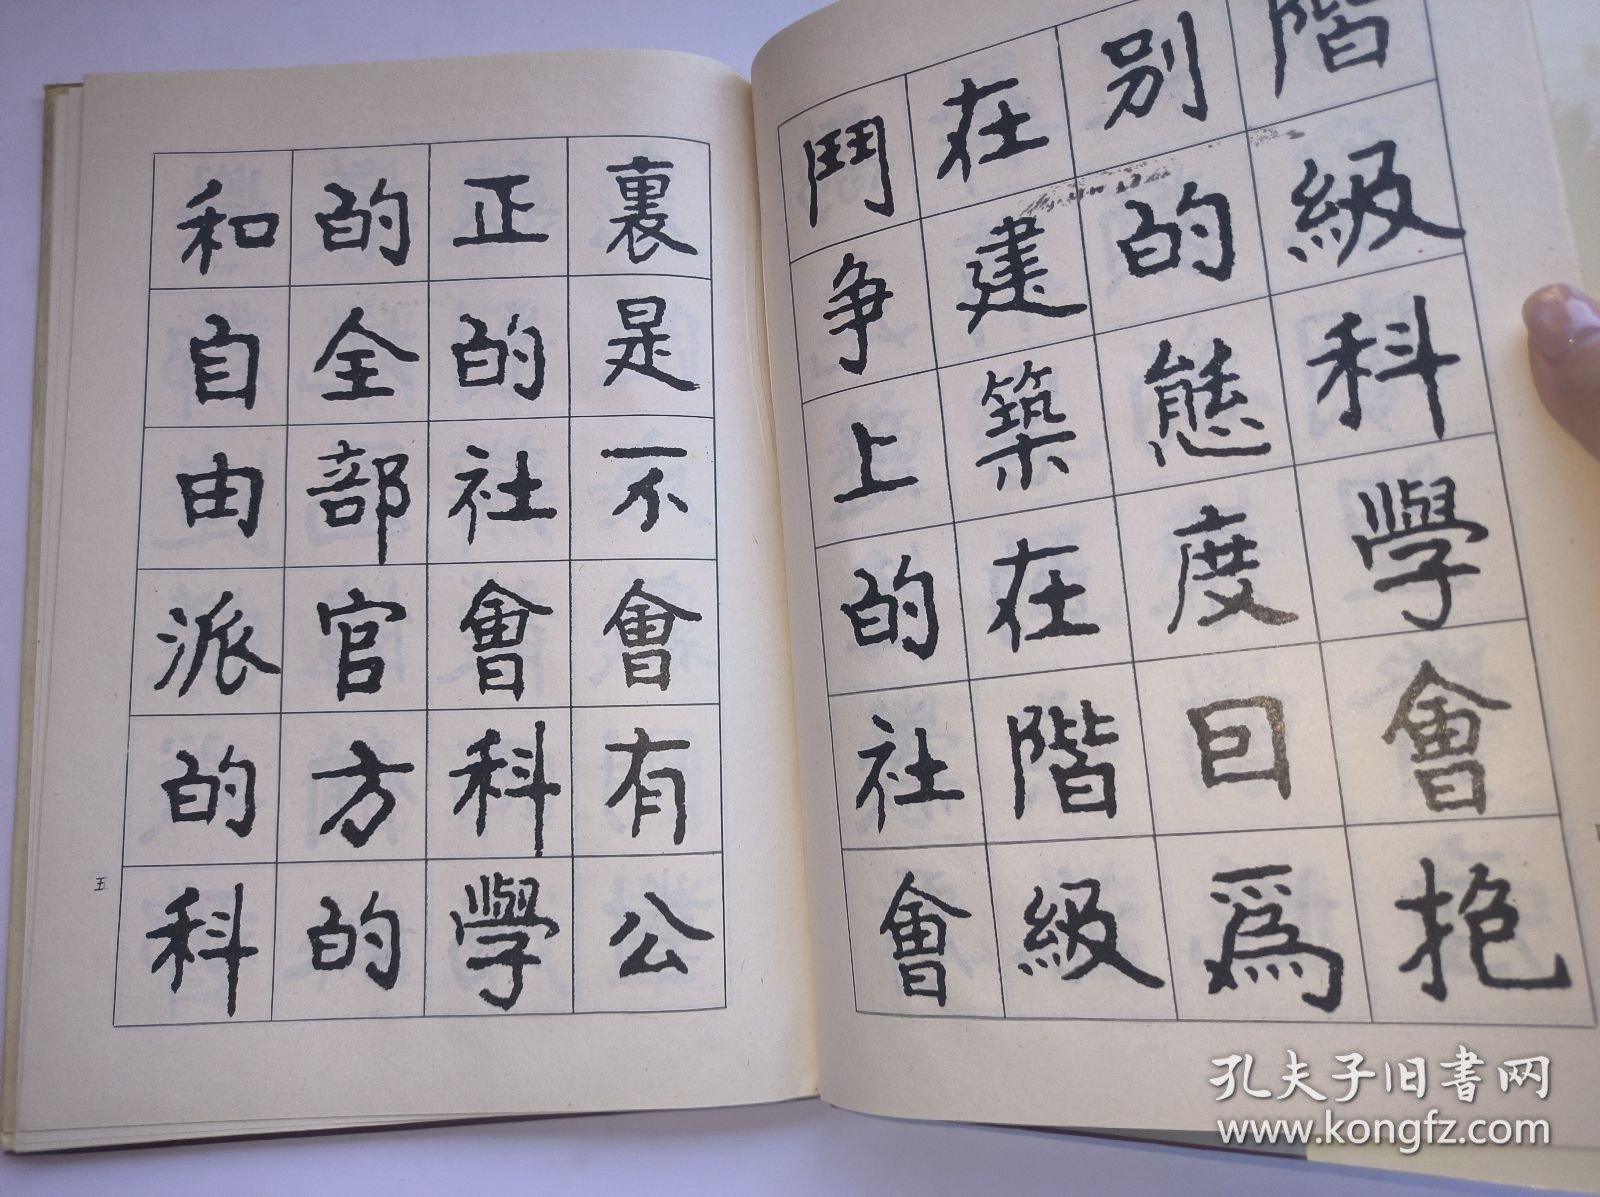 階級科學會抱
別的態度囙爲
在建築在階級
鬥爭上的社會
裏是不會有公
正的社會科學
的全部官方的
和自由派的科
五
孔夫子旧书网
www.kongfz.com